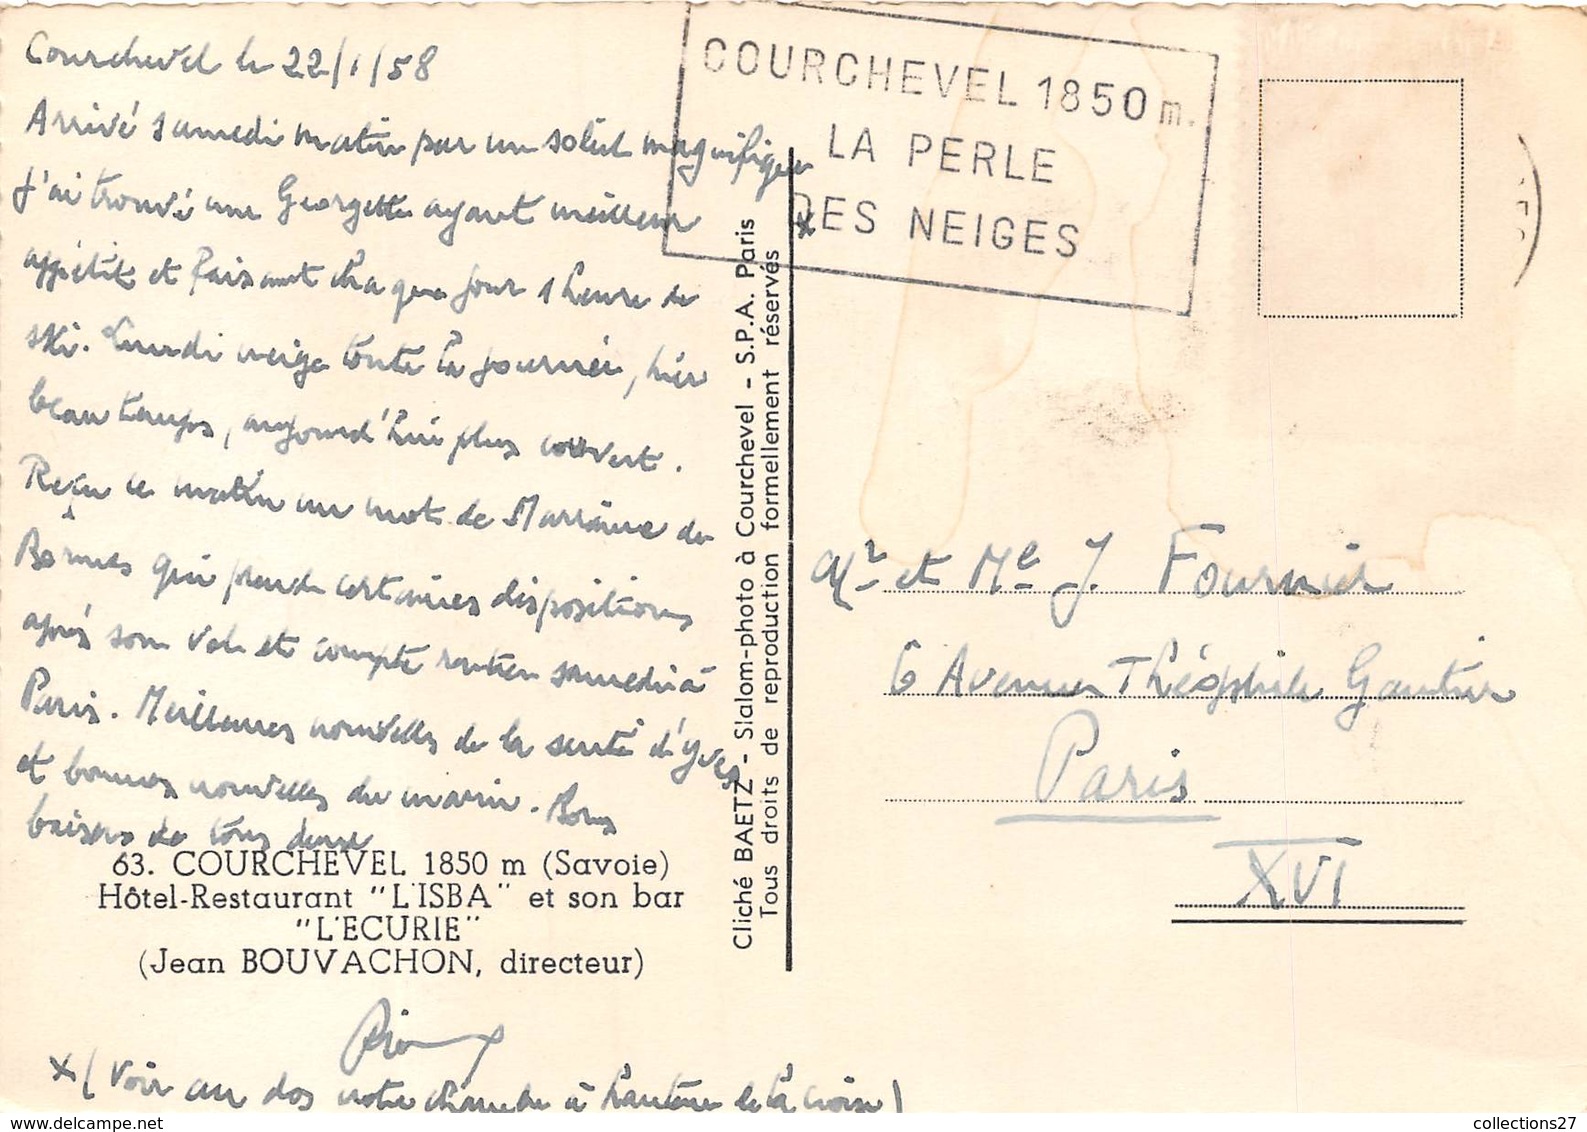 Courchevel le 22/1/58
Arrivé samedi matin par un soleil magnifique
J'ai trouvé une Georgette ayant meilleur
appétit et faisant chaque jour 1 heure de
ski. Lundi neige toute la journée, hier
beau temps, aujourd'hui plus couvert.
Reçu ce matin un mot de Marraine de
qui prend certaines dispositions
après son vol et compte rentrer samedi à
Paris. Meilleures nouvelles de la santé d'Yves
et bonnes nouvelles du marin. Bons
baisers de tous deux
63. COURCHEVEL 1850 m (Savoie)
Hôtel-Restaurant "L'ISBA" et son bar
"L'ECURIE"
(Jean BOUVACHON, directeur)
x (Voir au dos notre chambre à hauteur de la croix)
Cliché BAETZ - Slalom-photo à Courchevel - S.P.A. Paris
Tous droits de reproduction formellement réservés
COURCHEVEL 1850 m.
LA PERLE
DES NEIGES
x
Mr et Me J. Fournier
6 Avenue Théophile Gautier
Paris
XVI
collections27